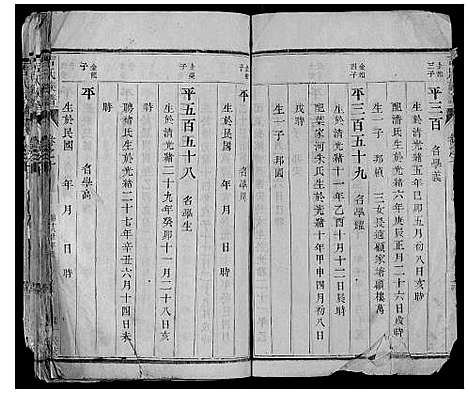 士
三子
平三百 名學義
生於清光緒五年己卯五月初八日戌時
配潘氏生於光緒六年庚辰正月二十六日戌時
生一子 邦楨 三女長適顧家塘顧樓萬
四子
平三百五十九 名學耀
生於清光緒十一年乙酉十月十二日辰時
配葉家河朱氏生於光緒十年甲申四月初八日
戌時
生一子 邦國
子
平 名學
生於民國 年 月 日 時
士榮
子
平五百五十八 名學生
生於清光緒二十九年癸卯十一月二十八日亥
時
聘褚氏生於光緒二十七年辛丑六月十四日未
時
子
平 名學禹
生於民國 年 月 日 時